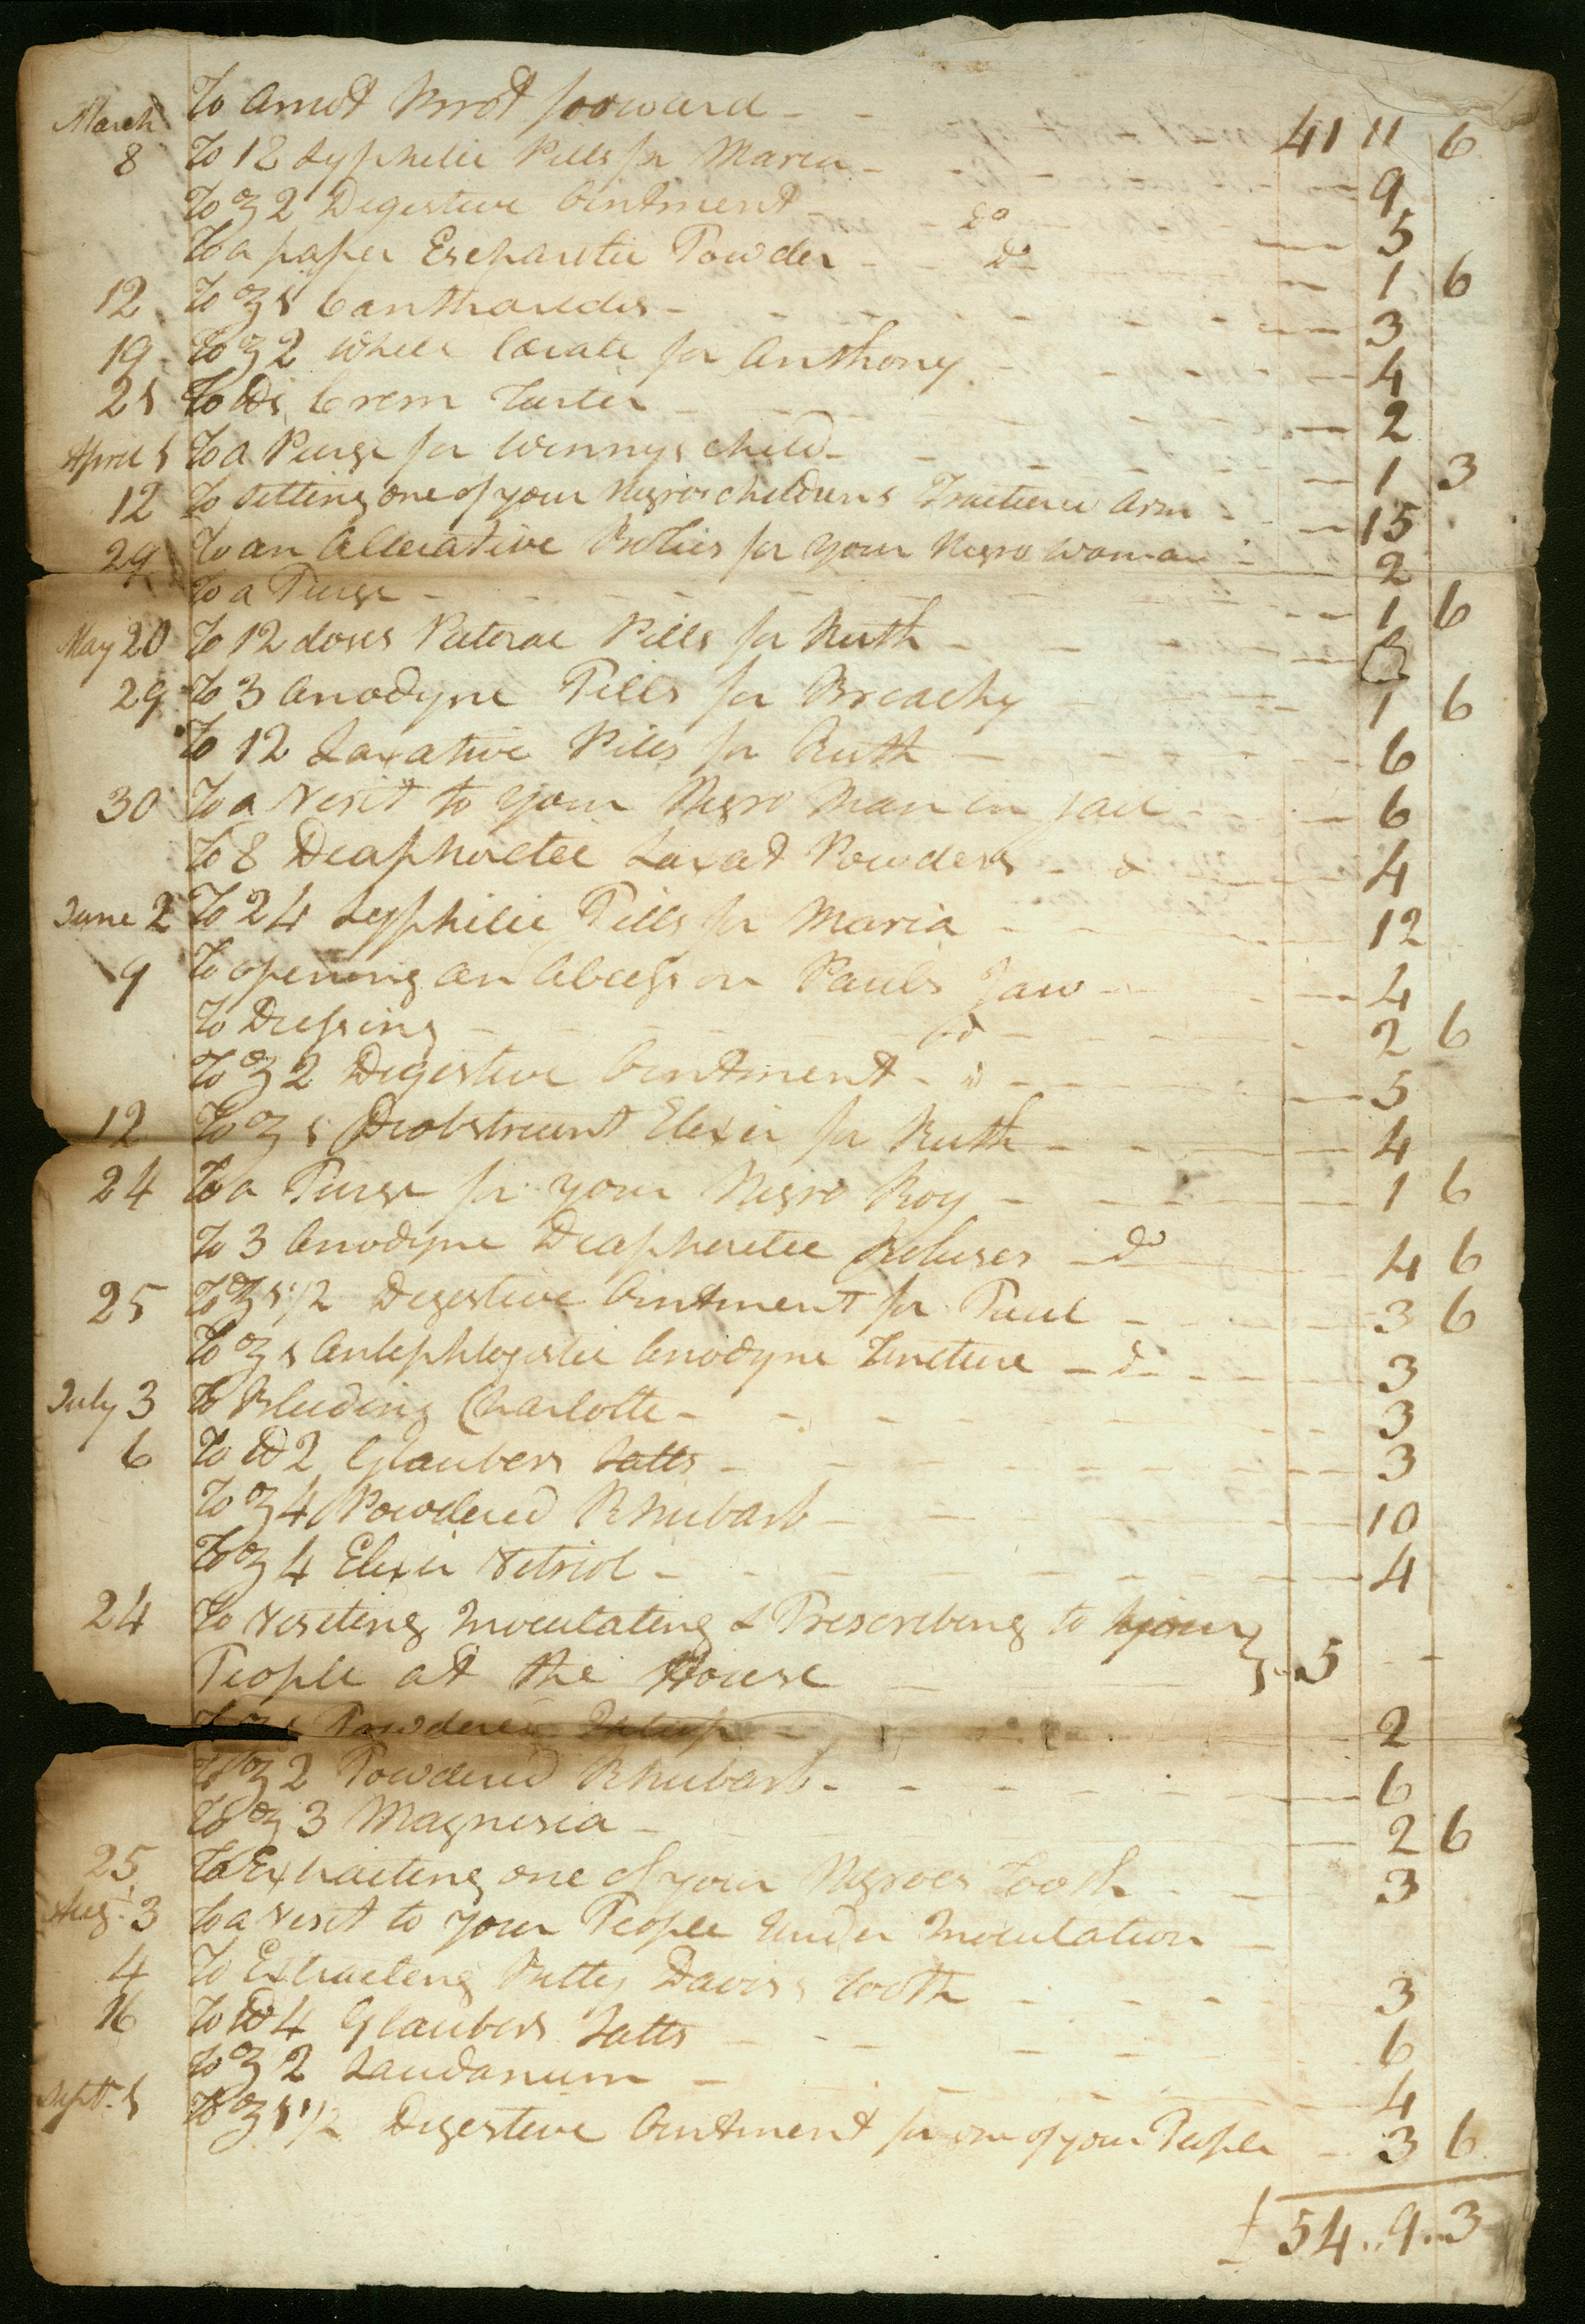 To Amot Brot forward - - 41 11 6
March 8 To 12 Syphilic Pills for Maria - - - 9
To ℥ 2 Digestive Ointment - do - 5
To a paper Escharotic Powder - - do - 1 6
12 To ℥ 1 Cantharides - - - 3
19 To ℥ 2 White Cerate for Anthony - - - 4
21 To lb 1 Crem Tarter - - - 2
April 1 To a Purge for Winnys child - - - 1 3
12 To setting one of your Negros childrens Fractured Arm - - 15
29 To an Allerative Bolus for your Negro Woman - - 2
To a Purge - - - 1 6
May 20 To 12 doses Pectoral Pills for Ruth - - -
29 To 3 Anodyne Pills for Breachy - - - 1 6
To 12 Laxative Pills for Ruth - - - 6
30 To a Visit to your Negro Man in Jail - - - 6
To 8 Diaphoretic Laxat Powders - do - 4
June 2 To 24 Syphilic Pills for Maria - - - 12
9 To opening an Abcess on Pauls Jaw - - - 4
To Dressing - - do - 2 6
To ℥ 2 Digestive Ointment - do - 5
12 To ℥ 1 Deobstruent Elexir for Ruth - - - 4
24 To a Purge for your Negro Boy - - - 1 6
To 3 Anodyne Diapheretic Boluses - do - 4 6
25 To ℥ 1 1/2 Digestive Ointment for Paul - - - 3 6
To ℥ 1 Antiphlogistic Anodyne Tincture - do - 3
July 3 To Bleeding Charlotte - - - 3
6 To lb 2 Glaubers Salts - - - 3
To ℥ 4 Powdered Rhubarb - - - 10
To ℥ 4 Elexir Vitriol - - - 4
24 To Visiting Inoculating & Prescribing to your }
People at the House - - - 5 - -
To ℥ 1 Powdered Jalup - - - 2
To ℥ 2 Powdered Rhubarb - - - 6
To ℥ 3 Magnesia - - - 2 6
25 To Extracting one of your Negroes Tooth - - - 3
Aug. 3 To a Visit to your People Under Inoculation -
4 To Extracting Davis Tooth - - - 3
16 To lb 4 Glaubers Salts - - - 6
To ℥ 2 Laudanum - - - 4
Sept. 1 To ℥ 1 1/2 Digestive Ointment for one of your People - 3 6
£ 54 .. 9 .. 3